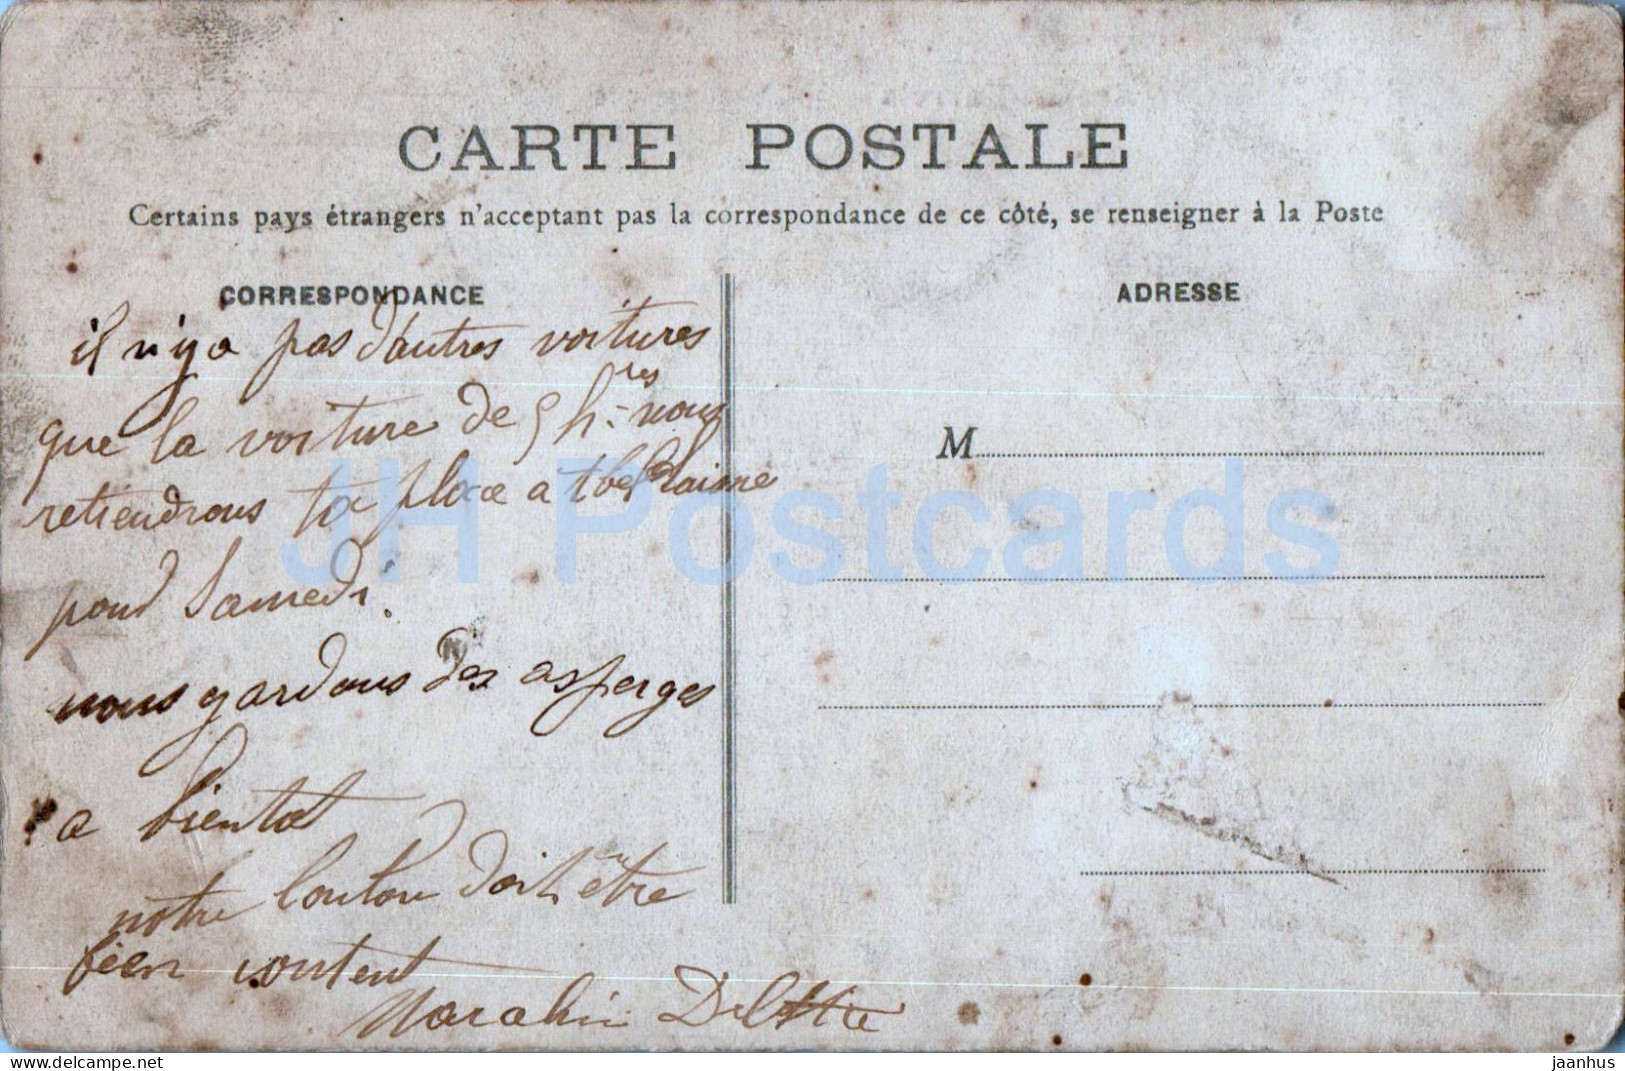 CARTE POSTALE
Certains pays étrangers n'acceptant pas la correspondance de ce côté, se renseigner à la Poste
CORRESPONDANCE
il n'y a pas d'autres voitures
que la voiture de 5 hres nous
retiendrons ta place a
pour Samedi.
nous gardons des asperges
a bientot
notre loulou doit être
bien content
ADRESSE
M
JH Postcards
www.delcampe.net
jaanhus